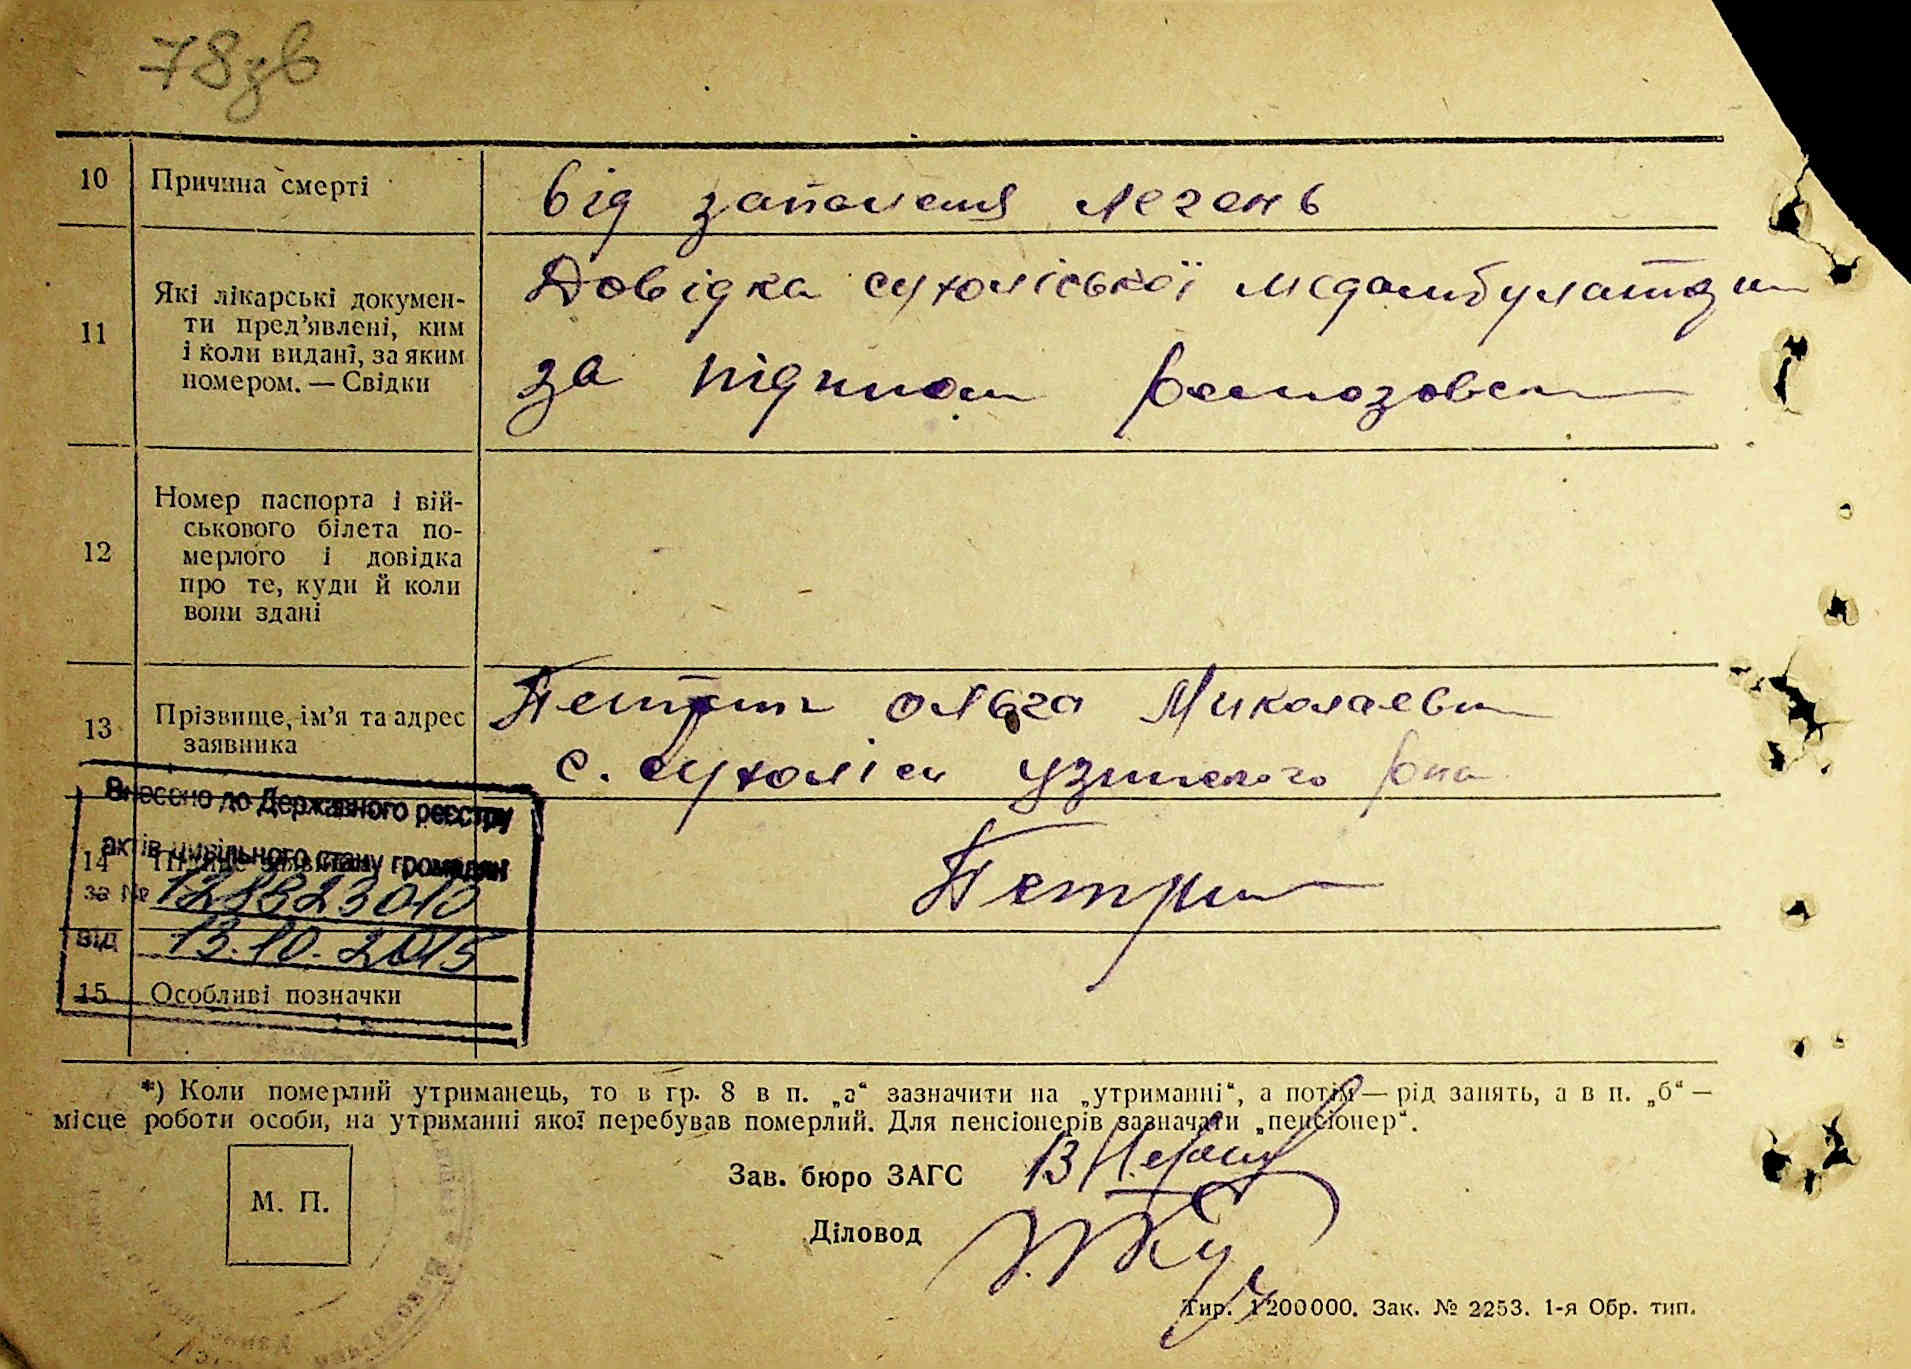 78зв
10 Причина смерті від запаленя легень
11 Які лікарські докумен-
ти пред'явлені, ким
і коли видані, за яким
номером. — Свідки
Довідка сухоліської медамбулатории
за підписом
12 Номер паспорта і вій-
ськового білета по-
мерлого і довідка
про те, куди й коли
вони здані
13 Прізвище, ім'я та адрес
заявника
Петрин Ольга Миколаевн
с. Сухоліси Узинского рна
Внесено до Державного реєстру
актів цивільного стану громадян
за № 128823010
від 13.10.2015
14 Підпис заявника Петрин
15 Особливі позначки
*) Коли померлий утриманець, то в гр. 8 в п. „а“ зазначити на „утриманні“, а потім — рід занять, а в п. „б“ —
місце роботи особи, на утриманні якої перебував померлий. Для пенсіонерів зазначати „пенсіонер“.
Зав. бюро ЗАГС
М. П.
Діловод
Тир. 1200000. Зак. № 2253. 1-я Обр. тип.